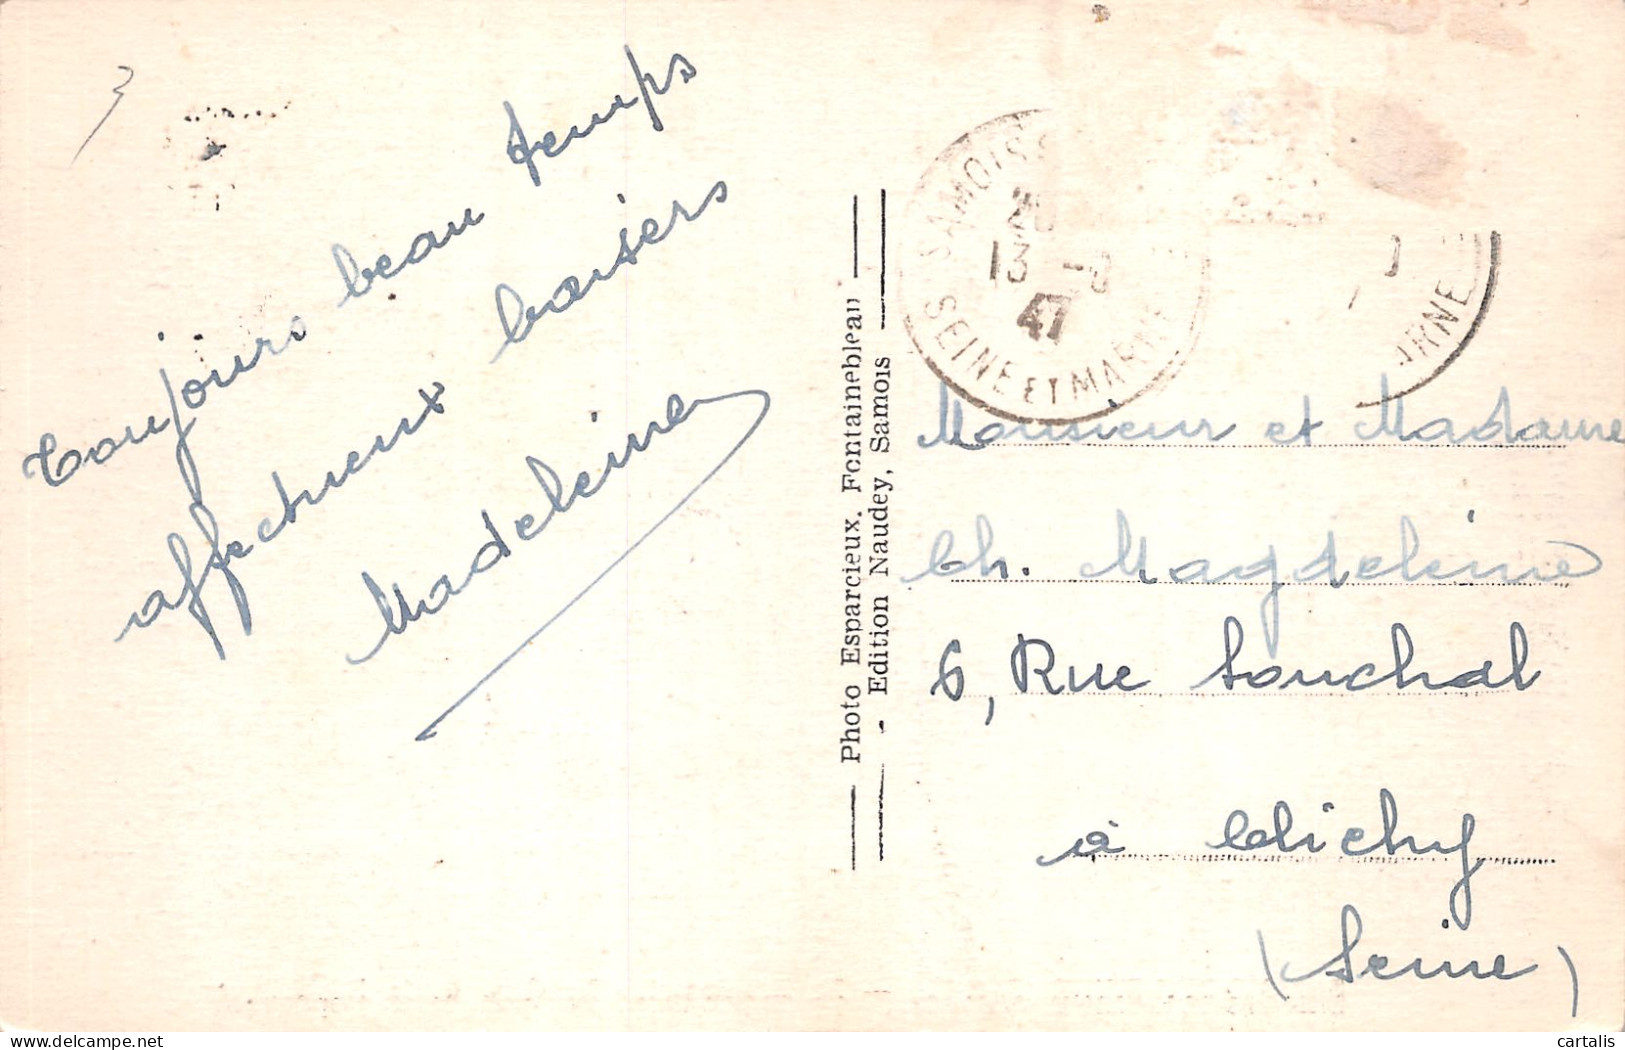 Toujours beau temps
affectueux baisers
Madeleine
Photo Esparcieux, Fontainebleau
- Edition Naudey, Samois
SAMOIS
13 -8
47
SEINE ET MARNE
ARNE
Monsieur et Madame
Ch. Magdeleine
6, Rue Souchal
à Clichy
(Seine)
cartalis
delcampe.net